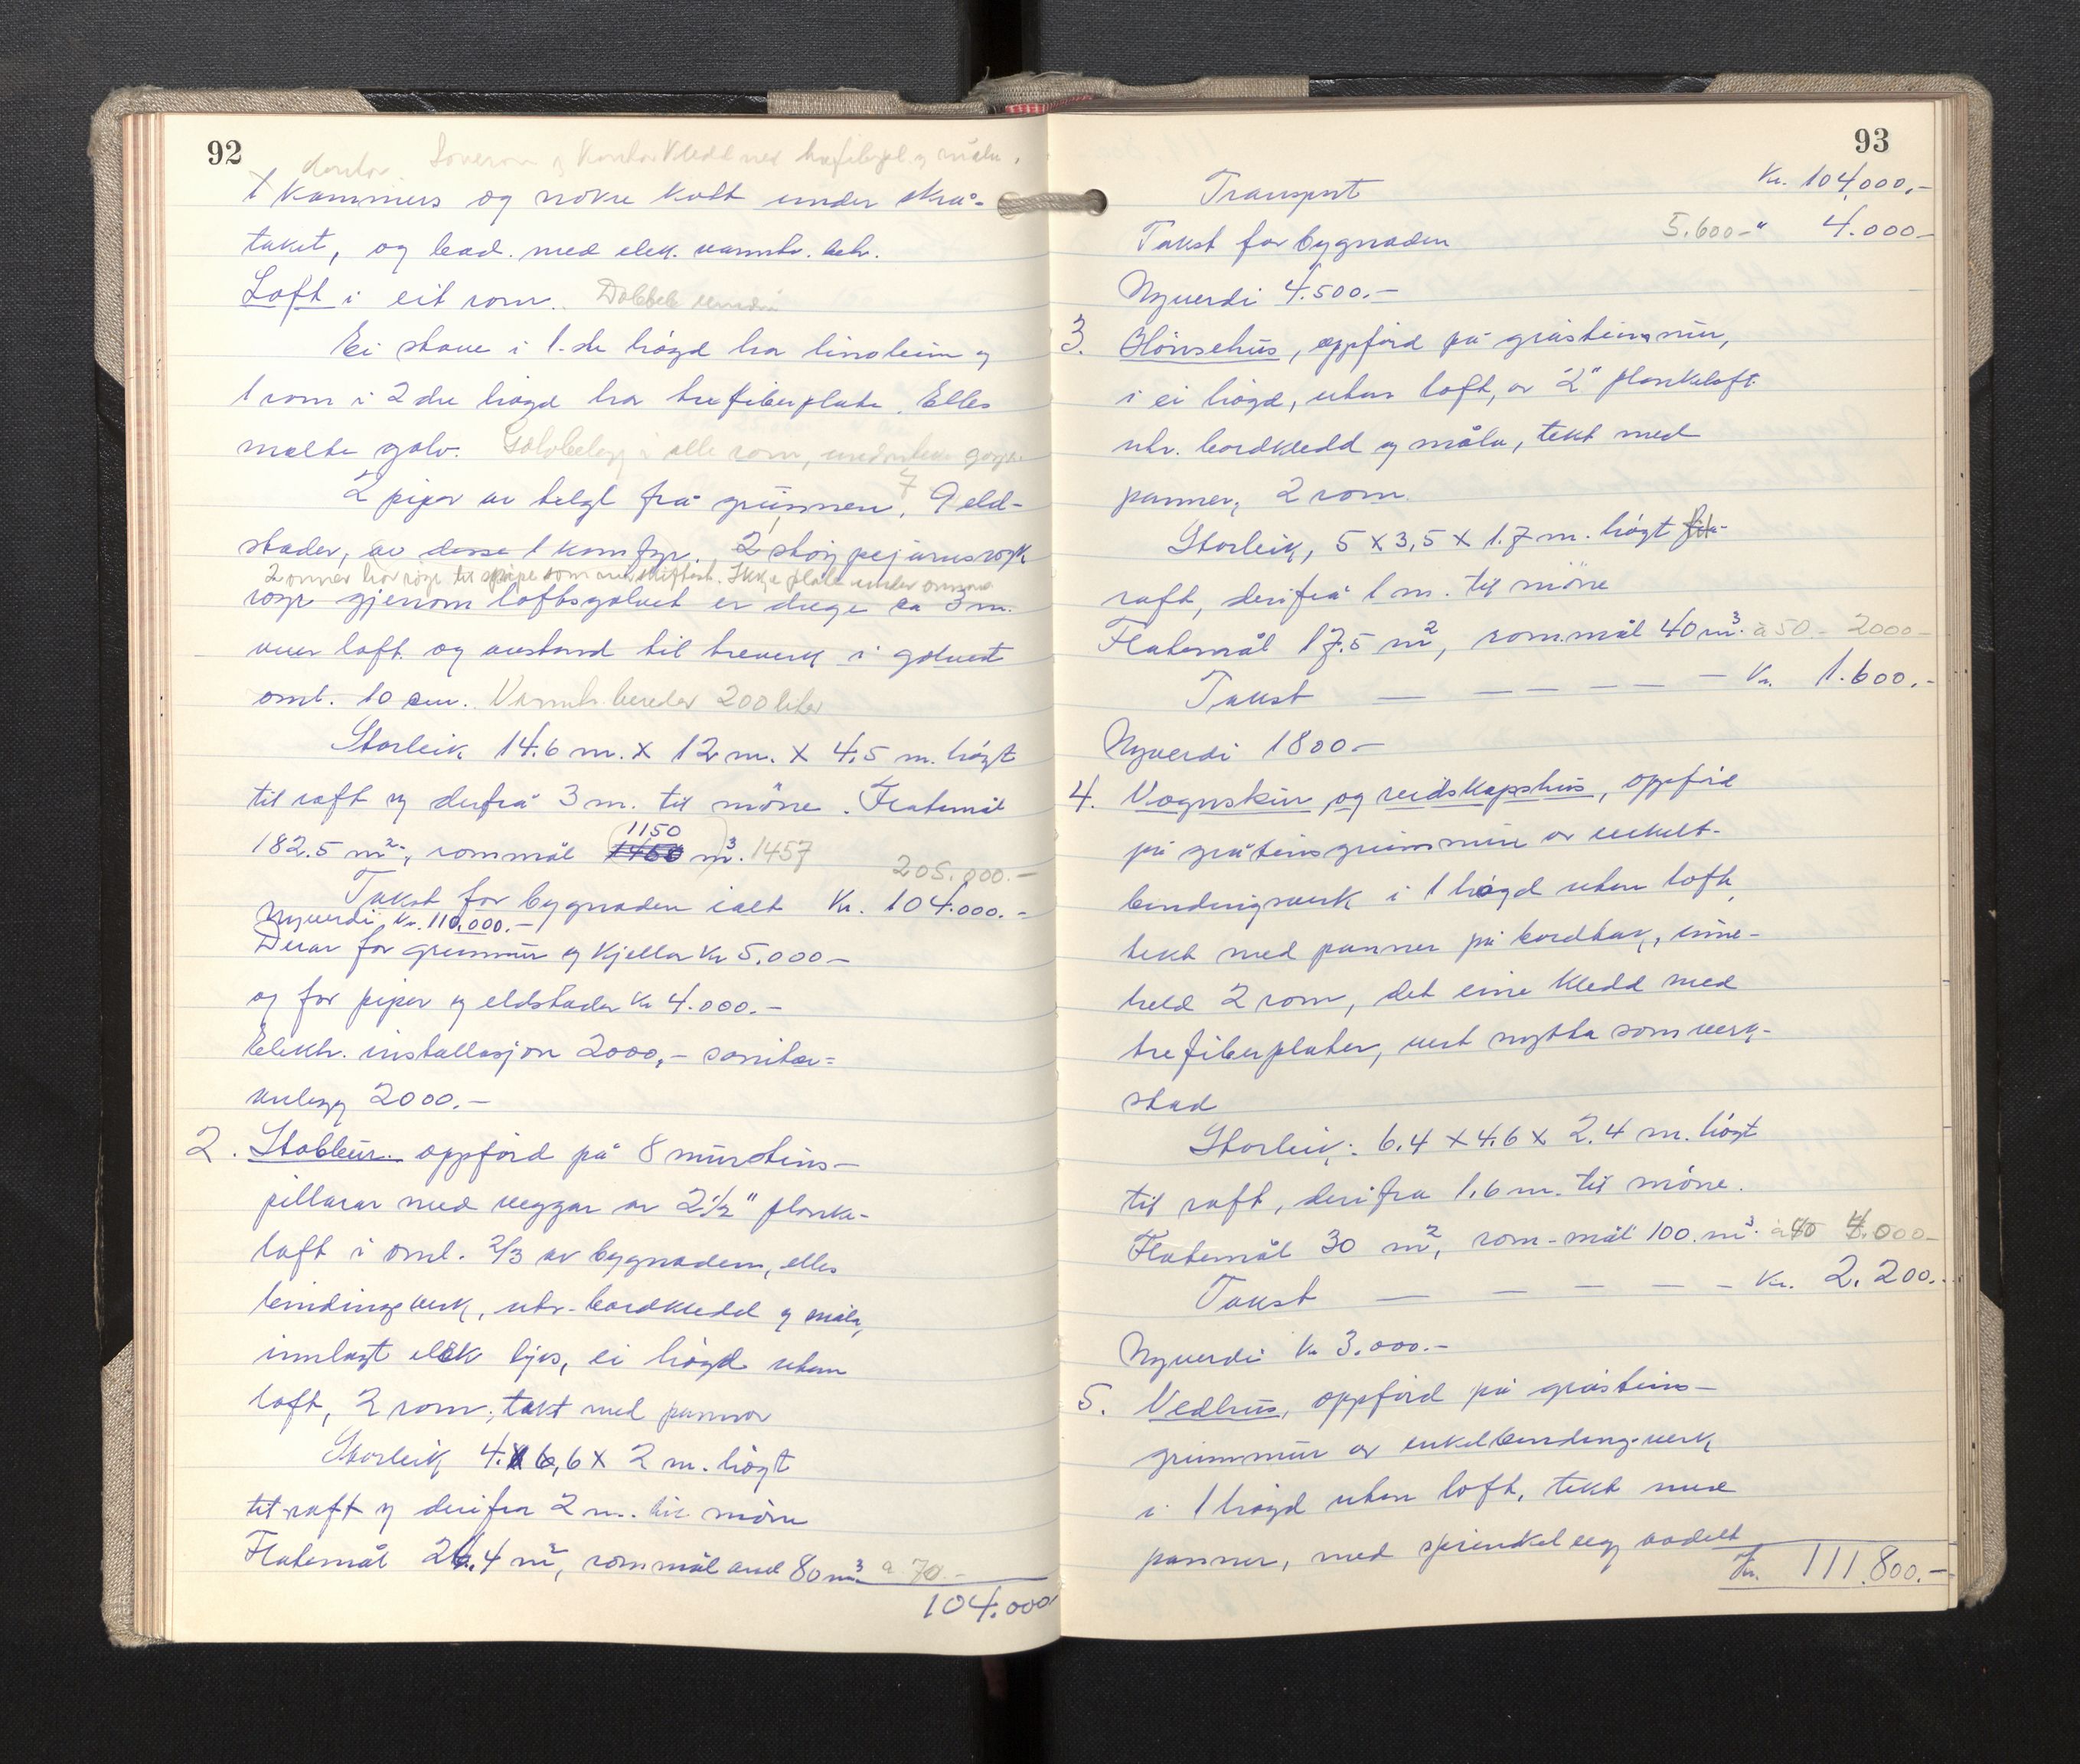 92
Soverom og kontor kledt med trefiberpl. og måla.
1 kammers og nokre kott under skrå-
taket, og bad. med elek. varmtv. beh.
Loft i eit rom. Dobbele
Ei stove i 1.ste högd har linoleum og
1 rom i 2dre högd har trefiberplate. Elles
malte golv. Golvbelegg i alle rom,
2 piper av telgt frå grunnen, 7 9 eld-
stader, av desse 1 komfyr. 2
2 omner har til pipe som Ikkje plate under omnane
rogr gjenom loftsgolvet er ca 3 m.
over loft og avstand til treverk i golvet
oml. 10 cm. Varmtv. bereder 200 liter
Storleik 14.6 m. x 12 m. x 4,5 m. högt
til raft og derfrå 3 m. til möne. Flatemål
1150
182.5 m², rommål 1450 m³. 1457
205.000.-
Takst for bygnaden ialt Kr. 104.000.-
Nyverdi Kr. 110.000.-
Derav for grunnmur og kjellar Kr 5.000-
og for piper og eldstader Kr 4.000.-
Elektr. installasjon 2000,- sanitær-
anlegg 2000.-
2. Stabbur. oppförd på 8 mursteins-
pillarar med veggar av 2½" planke-
laft i oml. 2/3 av bygnaden, elles
bindingsverk, utv. bordkledd og måla,
innlagt elek ljos, ei högd utan
loft, 2 rom, tekt med pannor
Storleik 4. x 6,6 x 2 m. högt
til raft og derifra 2 m. til möne
Flatemål 26.4 m², rommål 80 m³ a 70.-
104.000
93
Transport Kr. 104.000,-
Takst for bygnaden 5.600-" 4.000-
Nyverdi 4.500.-
3. Hönsehus, oppförd på gråsteinsmur,
i ei högd, utan loft, av 2" plankelaft
utv. bordkledd og måla, tekt med
panner, 2 rom
Storleik, 5 x 3,5 x 1.7 m. högt
raft, derifrå 1 m. til möne
Flatemål 17.5 m², rommål 40 m³. à 50.- 2000-
Takst — — — — — — Kr. 1.600.-
Nyverdi 1800.-
4. Vognskur og reidskapshus, oppförd
på gråsteinsgrunnmur av enkelt-
bindingsverk i 1 högd utan loft,
tekt med panner på bordtak, inne-
held 2 rom, det eine kledd med
trefiberplater, vert nytta som verk-
stad
Storleik: 6.4 x 4.6 x 2.4 m. högt
til raft, derifra 1.6 m. til möne.
Flatemål 30 m², rom-mål 100. m³. à 40 4.000-
Takst — — — — — Kr. 2.200.-
Nyverdi Kr 3.000.-
5. Vedhus, oppförd på gråsteins-
grunnmur av enkelbindingsverk
i 1 högd utan loft, tekt med
panner, med
Kr. 111.800.-